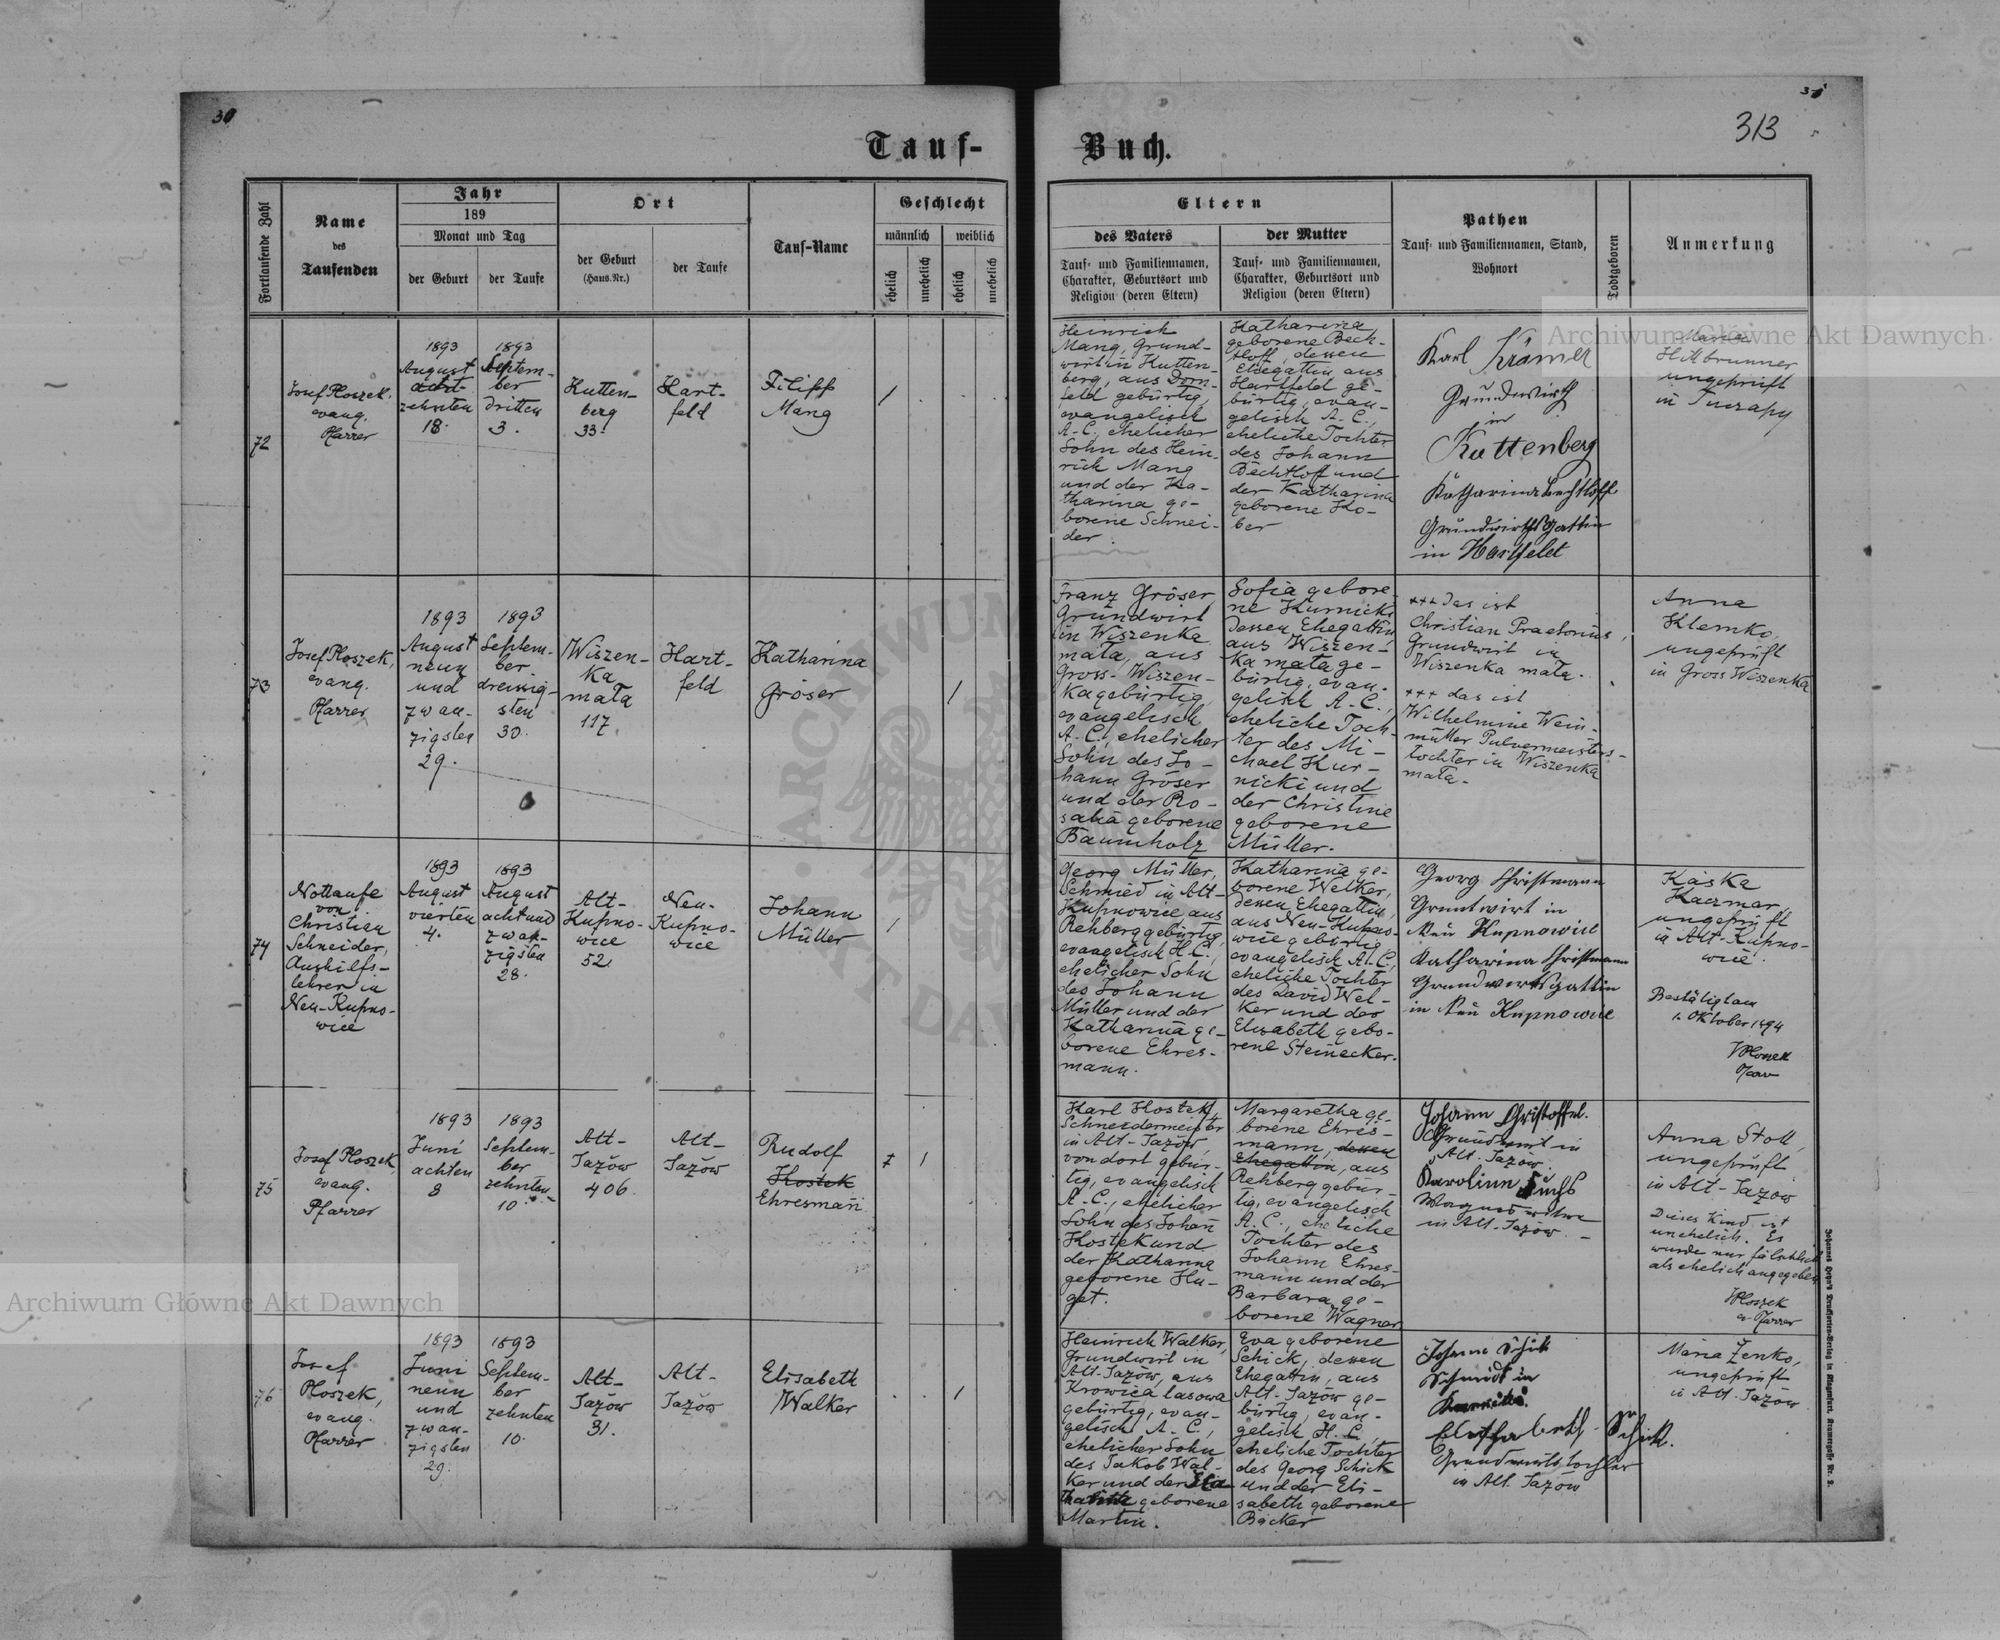 30
31
313
Tauf-
Buch.
Fortlaufende Zahl
Name
des
Taufenden
Jahr
189
Monat und Tag
der Geburt
der Taufe
Ort
der Geburt
(Haus-Nr.)
der Taufe
Tauf-Name
Geschlecht
männlich
weiblich
ehelich
unehelich
ehelich
unehelich
Eltern
des Vaters
Tauf- und Familiennamen,
Charakter, Geburtsort und
Religion (deren Eltern)
der Mutter
Tauf- und Familiennamen,
Charakter, Geburtsort und
Religion (deren Eltern)
Pathen
Tauf- und Familiennamen, Stand,
Wohnort
Todtgeboren
Anmerkung
72
Josef Ploszek,
evang.
Pfarrer
1893
August
acht-
zehnten
18.
1893
Septem-
ber
dritten
3.
Kutten-
berg
33.
Hart-
feld
Filipp
Mang
/
Heinrich
Mang, Grund-
wirt in Kutten-
berg, aus Dorn-
feld gebürtig,
evangelisch
A.C., ehelicher
Sohn des Hein-
rich Mang
und der Ka-
tharina ge-
borene Schnei-
der.
Katharina
geborene Bech-
tloff, dessen
Ehegattin aus
Hartfeld ge-
bürtig, evan-
gelisch A.C.,
eheliche Tochter
des Johann
Bechtloff und
der Katharina
geborene Ko-
ber
Karl Krämer
Grundwirth
in
Kuttenberg
Katharina Bechtloff
Grundwirths Gattin
in Hartfeld
ungeprüft
in Tuczapy
73
Josef Ploszek,
evang.
Pfarrer
1893
August
neun
und
zwan-
zigsten
29.
1893
Septem-
ber
dreissig-
sten
30.
Wiszen-
ka
mała
117.
Hart-
feld
Katharina
Gröser
/
Franz Gröser
Grundwirt
in Wiszenka
mała, aus
Gross-Wiszen-
ka gebürtig,
evangelisch
A.C., ehelicher
Sohn des Jo-
hann Gröser
und der Ro-
salia geborene
Baumholz
Sofia gebore-
ne Kurnicki
dessen Ehegattin
aus Wiszen-
ka mała ge-
bürtig, evan-
gelisch A.C.,
eheliche Toch-
ter des Mi-
chael Kur-
nicki und
der Christine
geborene
Müller.
+++ das ist
Christian Praetorius,
Grundwirt in
Wiszenka mała.
+++ das ist
Wilhelmine Wein-
müller Pulvermeisters-
tochter in Wiszenka
mała.
Anna
Klemko,
ungeprüft
in Gross Wiszenka
74
Nottaufe
von
Christian
Schneider,
Aushilfs-
lehrer in
Neu-Kupno-
wice
1893
August
vierten
4.
1893
August
acht und
zwan-
zigsten
28.
Alt-
Kupno-
wice
52.
Neu-
Kupno-
wice
Johann
Müller
/
Georg Müller,
Schmied in Alt-
Kupnowice, aus
Rehberg gebürtig,
evangelisch H.C.,
ehelicher Sohn
des Johann
Müller und der
Katharina ge-
borene Ehres-
mann.
Katharina ge-
borene Welker,
dessen Ehegattin,
aus Neu-Kupno-
wice gebürtig,
evangelisch A.C.,
eheliche Tochter
des David Wel-
ker und der
Elisabeth gebo-
rene Steinecker.
Georg Christmann
Gruntwirt in
Neu Kupnowice
Katharina Christmann
Grundwirts Gattin
in Neu Kupnowice
Kaśka
Kaczmar,
ungeprüft
in Alt-Kupno-
wice.
Bestätigt am
1. Oktober 1894
JPloszek
Pfarrer
75
Josef Ploszek,
evang.
Pfarrer
1893
Juni
achten
8
1893
Septem-
ber
zehnten
10.
Alt-
Jażów
406.
Alt-
Jażów
Rudolf
Kostek
Ehresmañ
/
Karl Kostek,
Schneidermeister
in Alt-Jażów,
von dort gebür-
tig, evangelisch
A.C., ehelicher
Sohn des Johañ
Kostek und
der Katharina
geborene Hu-
get.
Margaretha ge-
borene Ehres-
mann, dessen
Ehegattin, aus
Rehberg gebür-
tig, evangelisch
A.C., eheliche
Tochter des
Johann Ehres-
mann und der
Barbara ge-
borene Wagner
Johann Christoffel.
Grundwirt in
Alt. Jazów.
Karolina Fuchs
in Alt. Jazów. -
Anna Stoll,
ungeprüft
in Alt-Jazow
Dieses Kind ist
unehelich. Es
wurde nur fälschlich
als ehelich angegeben
JPloszek
ev Pfarrer
76
Josef
Ploszek,
evang.
Pfarrer
1893
Juni
neun
und
zwan-
zigsten
29.
1893
Septem-
ber
zehnten
10.
Alt-
Jażów
31.
Alt-
Jażów
Elisabeth
Walker
/
Heinrich Walker,
Grundwirt in
Alt-Jażów, aus
Krowica lasowa
gebürtig, evan-
gelisch A.C.,
ehelicher Sohn
des Jakob Wal-
ker und der
geborene
Martin.
Eva geborene
Schick, dessen
Ehegattin, aus
Alt-Jażów ge-
bürtig, evan-
gelisch H.C.,
eheliche Tochter
des Georg Schick
und der Eli-
sabeth geborene
Bäcker
Johann Schick
Schmidt in
Elisabeth Schick.
Grundwirts tochter
in Alt. Jazow
Maria Żenko,
ungeprüft
in Alt-Jazow
Archiwum Główne Akt Dawnych
Archiwum Główne Akt Dawnych